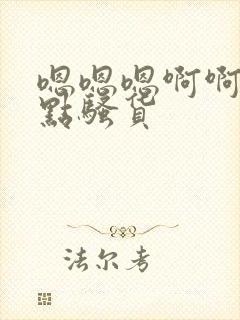 嗯嗯嗯啊啊
點騷貨
法尔考